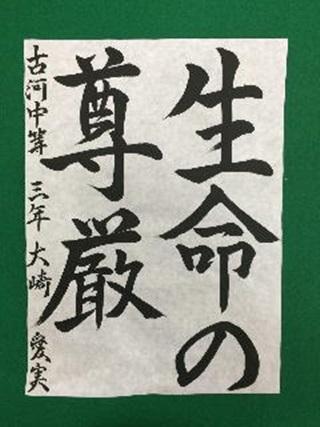 生命の
尊厳
古河中等 三年 大崎 愛実